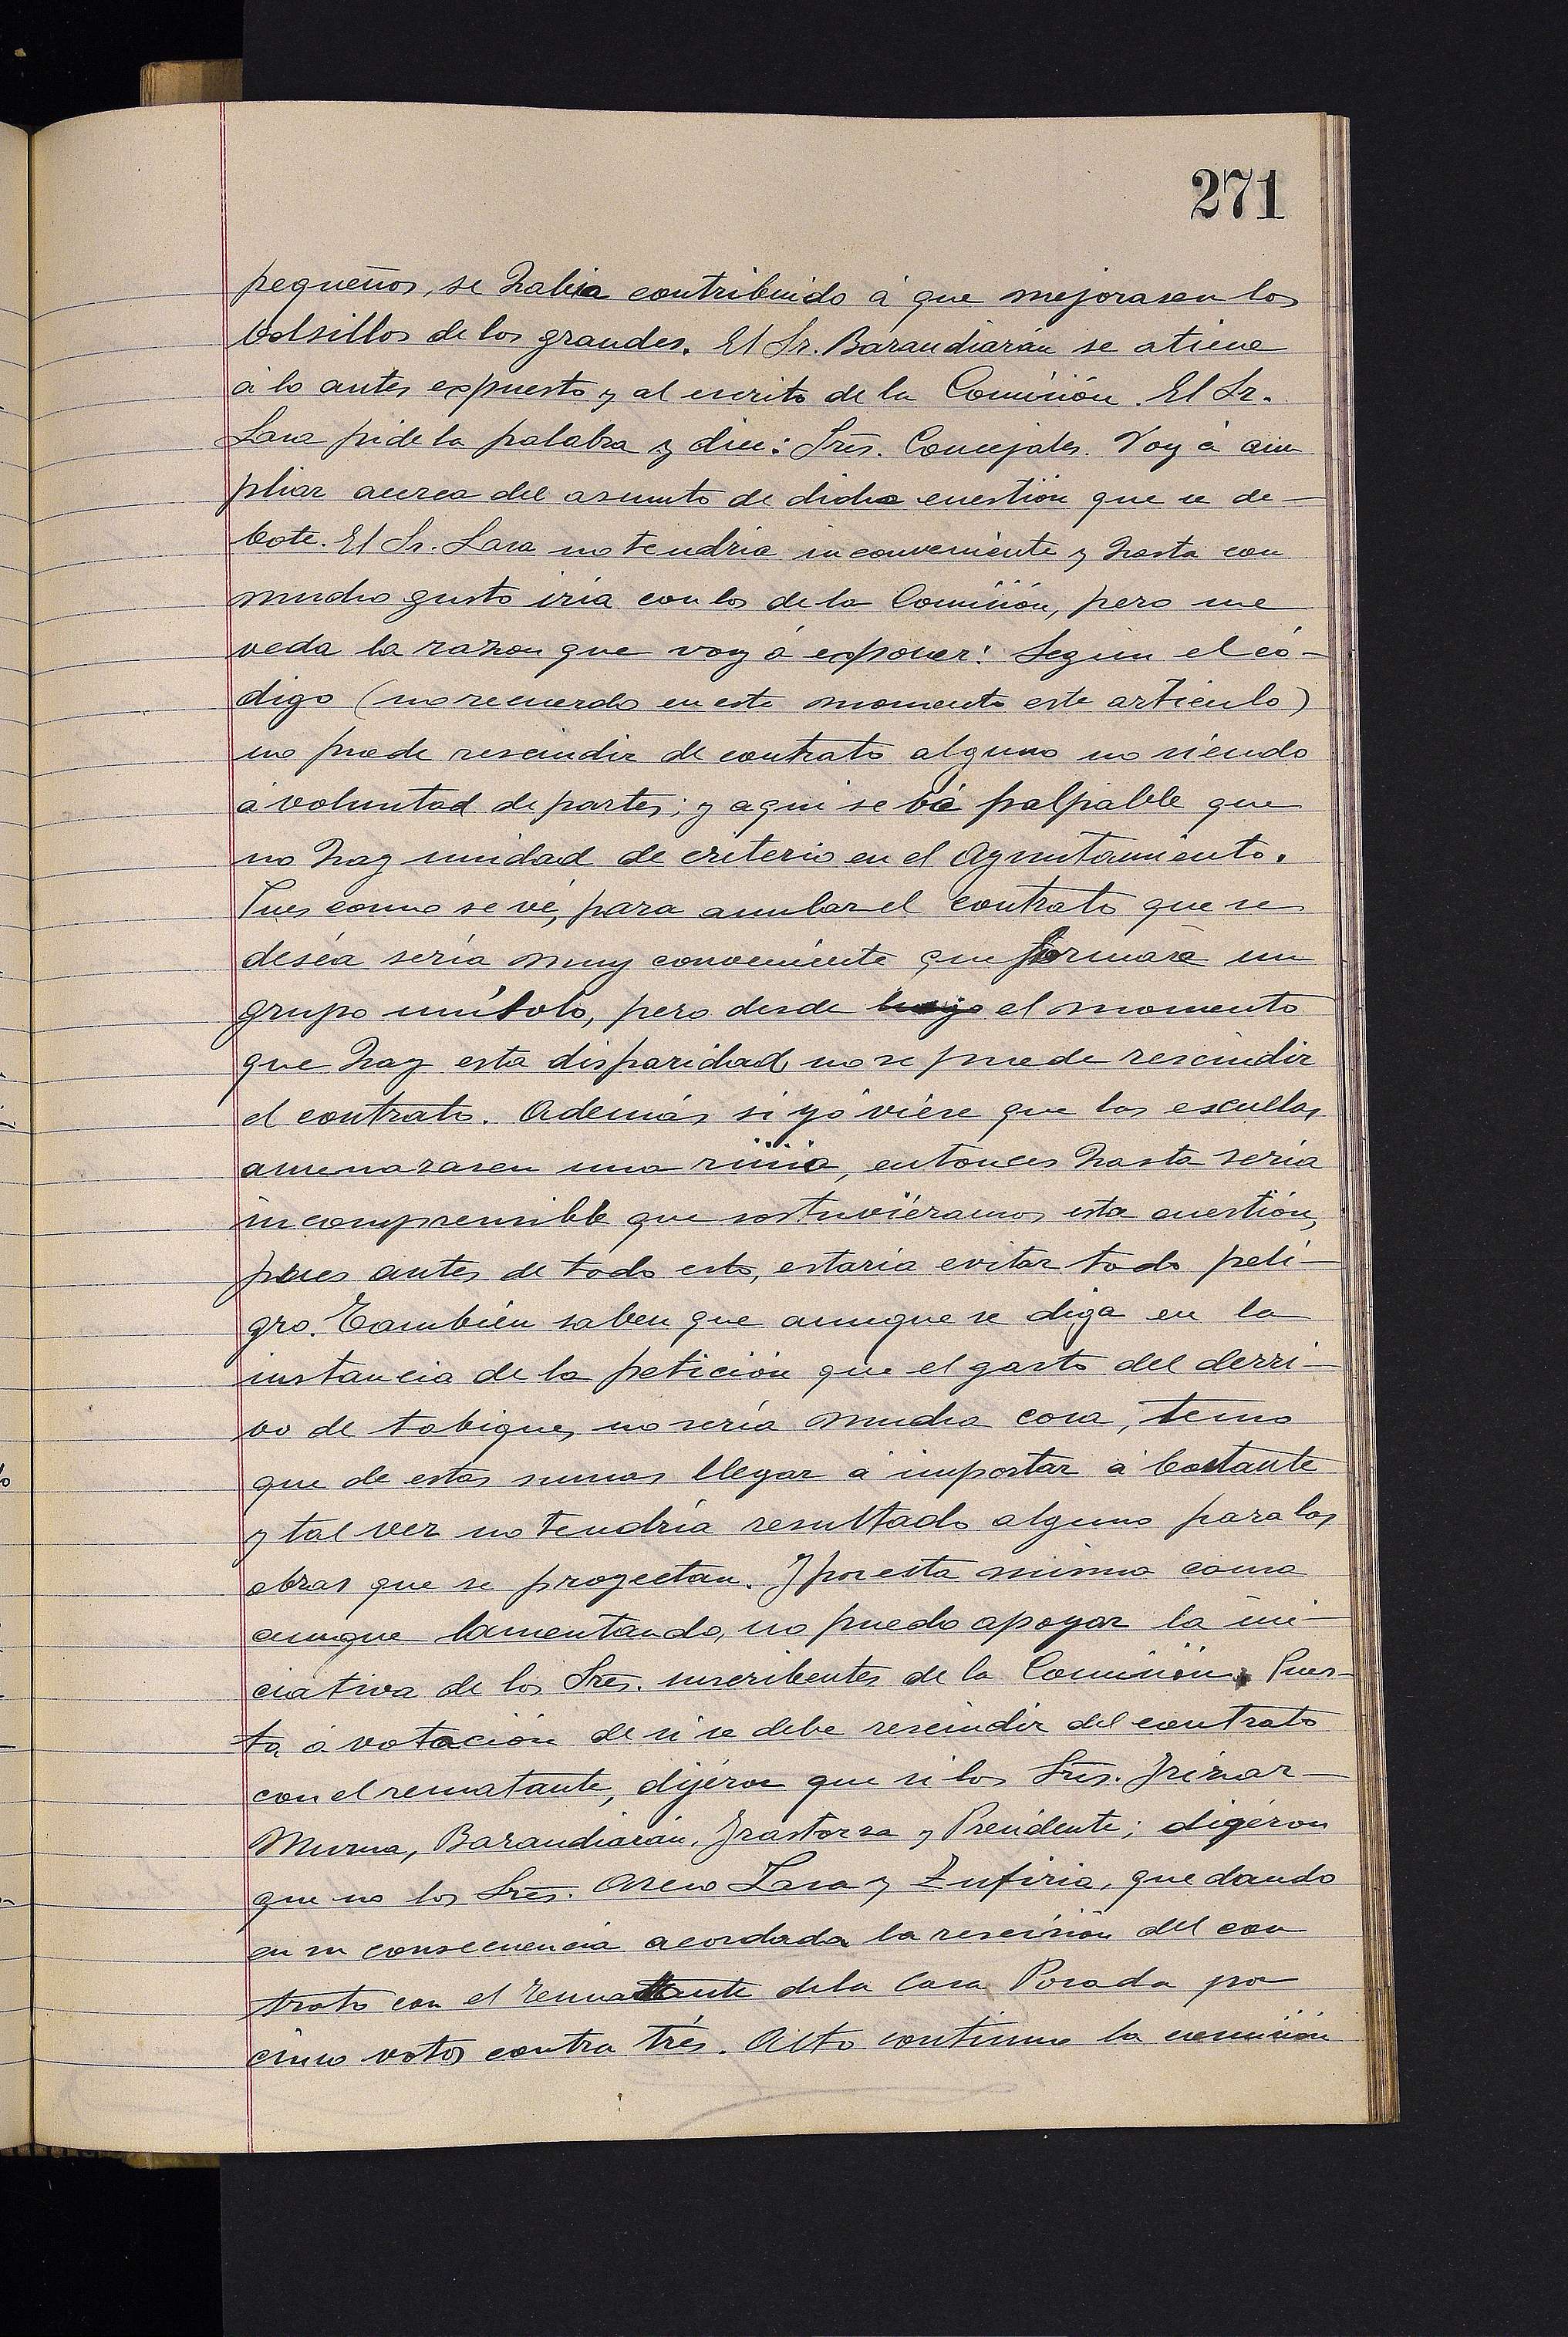 271
pequeños, se había contribuido á que mejorasen los
bolsillos de los grandes. El Sr. Barandiarán se atiene
á lo antes expuesto y al escrito de la Comisión. El Sr.
Lasa pide la palabra y dice: Sres. Concejales. Voy á am
pliar acerca del asunto de dicha cuestión que se de-
bate. El Sr. Lasa no tendria inconveniente y hasta con
mucho gusto iría con los de la Comisión, pero me
veda la razon que voy á exponer: Segun el có-
digo (no recuerdo en este momento este artículo)
no puede rescindir de contrato alguno no siendo
á voluntad de partes; y aqui se vé palpable que
no hay unidad de criterio en el Ayuntamiento.
Pues como se vé, para anular el contrato que se
deséa sería muy conveniente que formara un
grupo uno solo, pero desde luego el momento
que hay esta disparidad no se puede rescindir
el contrato. Además si yó viese que las escuelas
amenazasen una ruina, entonces hasta seria
incomprensible que sostuviéramos esta cuestión,
pues antes de todo esto, estaría evitar todo peli-
gro. También saben que aunque se diga en la
instancia de la petición que el gasto del derri-
vo de tabiques no sería mucha cosa, temo
que de estas sumas llegar á importar á bastante
y tal vez no tendría resultado alguno para las
obras que se proyectan. Y por esta misma causa
aunque lamentando, no puedo apoyar la ini-
ciativa de los Sres. suscribentes de la Comisión. Pues-
ta á votación de si se debe rescindir del contrato
con el rematante, dijéron que si los Sres. Irizar-
Murua, Barandiarán, Irastorza y Presidente; digéron
que no los Sres. Aseu Lasa y Zufiria, quedando
en su consecuencia acordada la rescisión del con
trato con el rematante de la Casa Posada por
cinco votos contra trés. Acto continuo la comisión